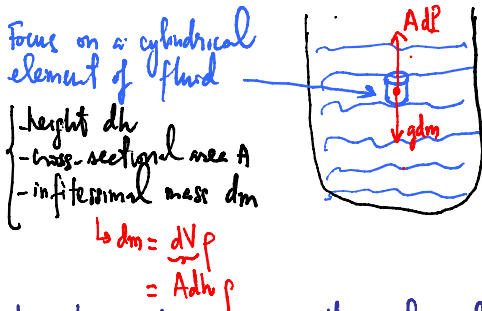 Focus on a cylindrical
element of fluid
- height dh
- cross-sectional area A
- infitessimal mass dm
↳ dm = dV ρ
= Adh ρ
AdP
gdm